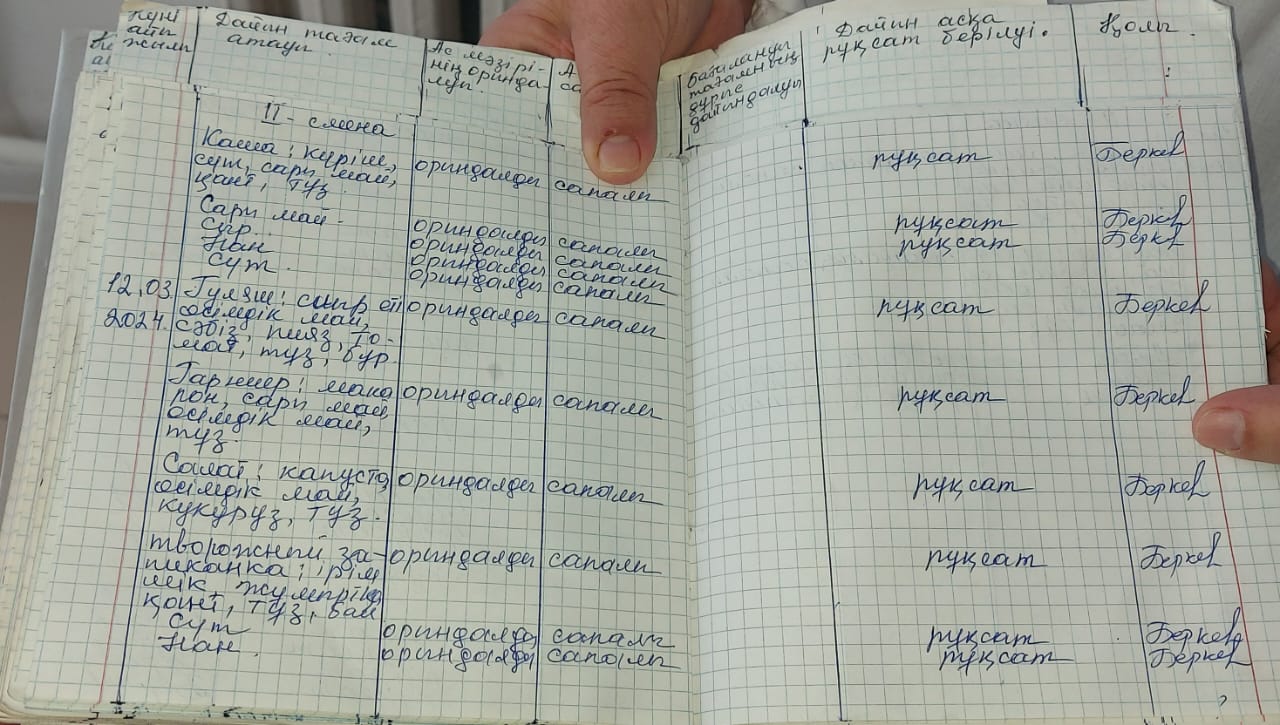 Күні айы жылы
Дайын тағам атауы
Ас мәзірінің орындалуы.
Дайын асқа рұқсат берілуі.
Қолы.
II - смена
Каша: күріш, орындалды сапалы рұқсат Беркев
сүт, сары май,
қант, тұз.
Сары май - орындалды сапалы рұқсат Беркев
Сыр. орындалды сапалы рұқсат Беркев
Нан орындалды сапалы
Сүт. орындалды сапалы
12.03. Гуляш: сиыр еті орындалды сапалы рұқсат Беркев
2024. өсімдік май,
сәбіз, пияз, то-
мат, тұз, бұр.
Гарнир: мака орындалды сапалы рұқсат Беркев
рон, сары май
өсімдік май,
тұз.
Салат: капуста, орындалды сапалы рұқсат Беркев
өсімдік май,
кукуруз, тұз.
творожный за- орындалды сапалы рұқсат Беркев
пиканка: ірім
шік, жұмыртқа
қант, тұз,
Сүт орындалды сапалы рұқсат Беркев
Нан. орындалды сапалы рұқсат Беркев